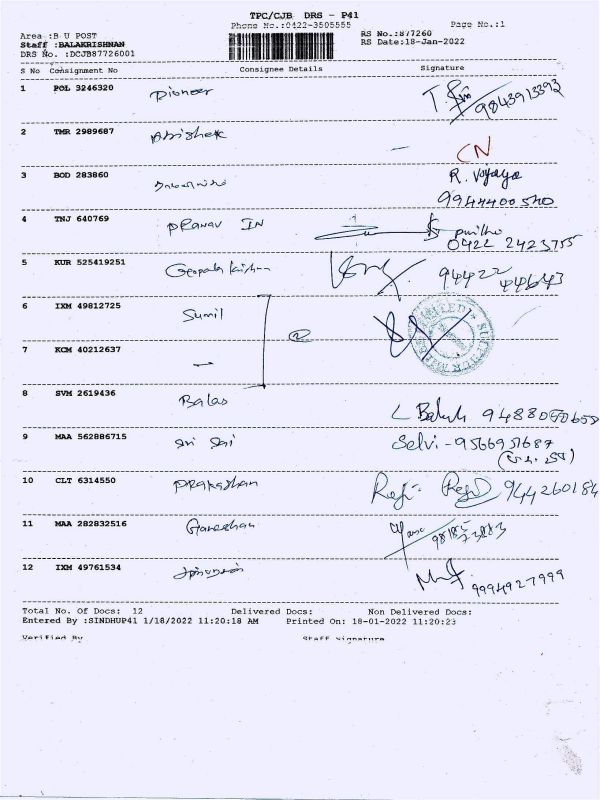 TPC/CJB DRS - P41
Phone No.:0422-3505555 Page No.:1
Area :B U POST RS No.:877260
Staff :BALAKRISHNAN RS Date:18-Jan-2022
DRS No. :DCJB87726001
S No Consignment No Consignee Details Signature
1 POL 3246320 Pioneer 9843913392
2 TMR 2989687 Abishek CN
3 BOD 283860 R. Vijaya
9944400540
4 TNJ 640769 PRanav IN
0422 2423755
5 KUR 525419251 Gopala Krishnan 94422 44643
6 IXM 49812725 Sumil
7 KCM 40212637
8 SVM 2619436 Balas
9 MAA 562886715 Sri Sai Selvi - 9566951687
10 CLT 6314550 PRakashan 944260184
11 MAA 282832516 Ganeshan
12 IXM 49761534 9994927999
Total No. Of Docs: 12 Delivered Docs: Non Delivered Docs:
Entered By :SINDHUP41 1/18/2022 11:20:18 AM Printed On: 18-01-2022 11:20:23
Verified By Staff Signature